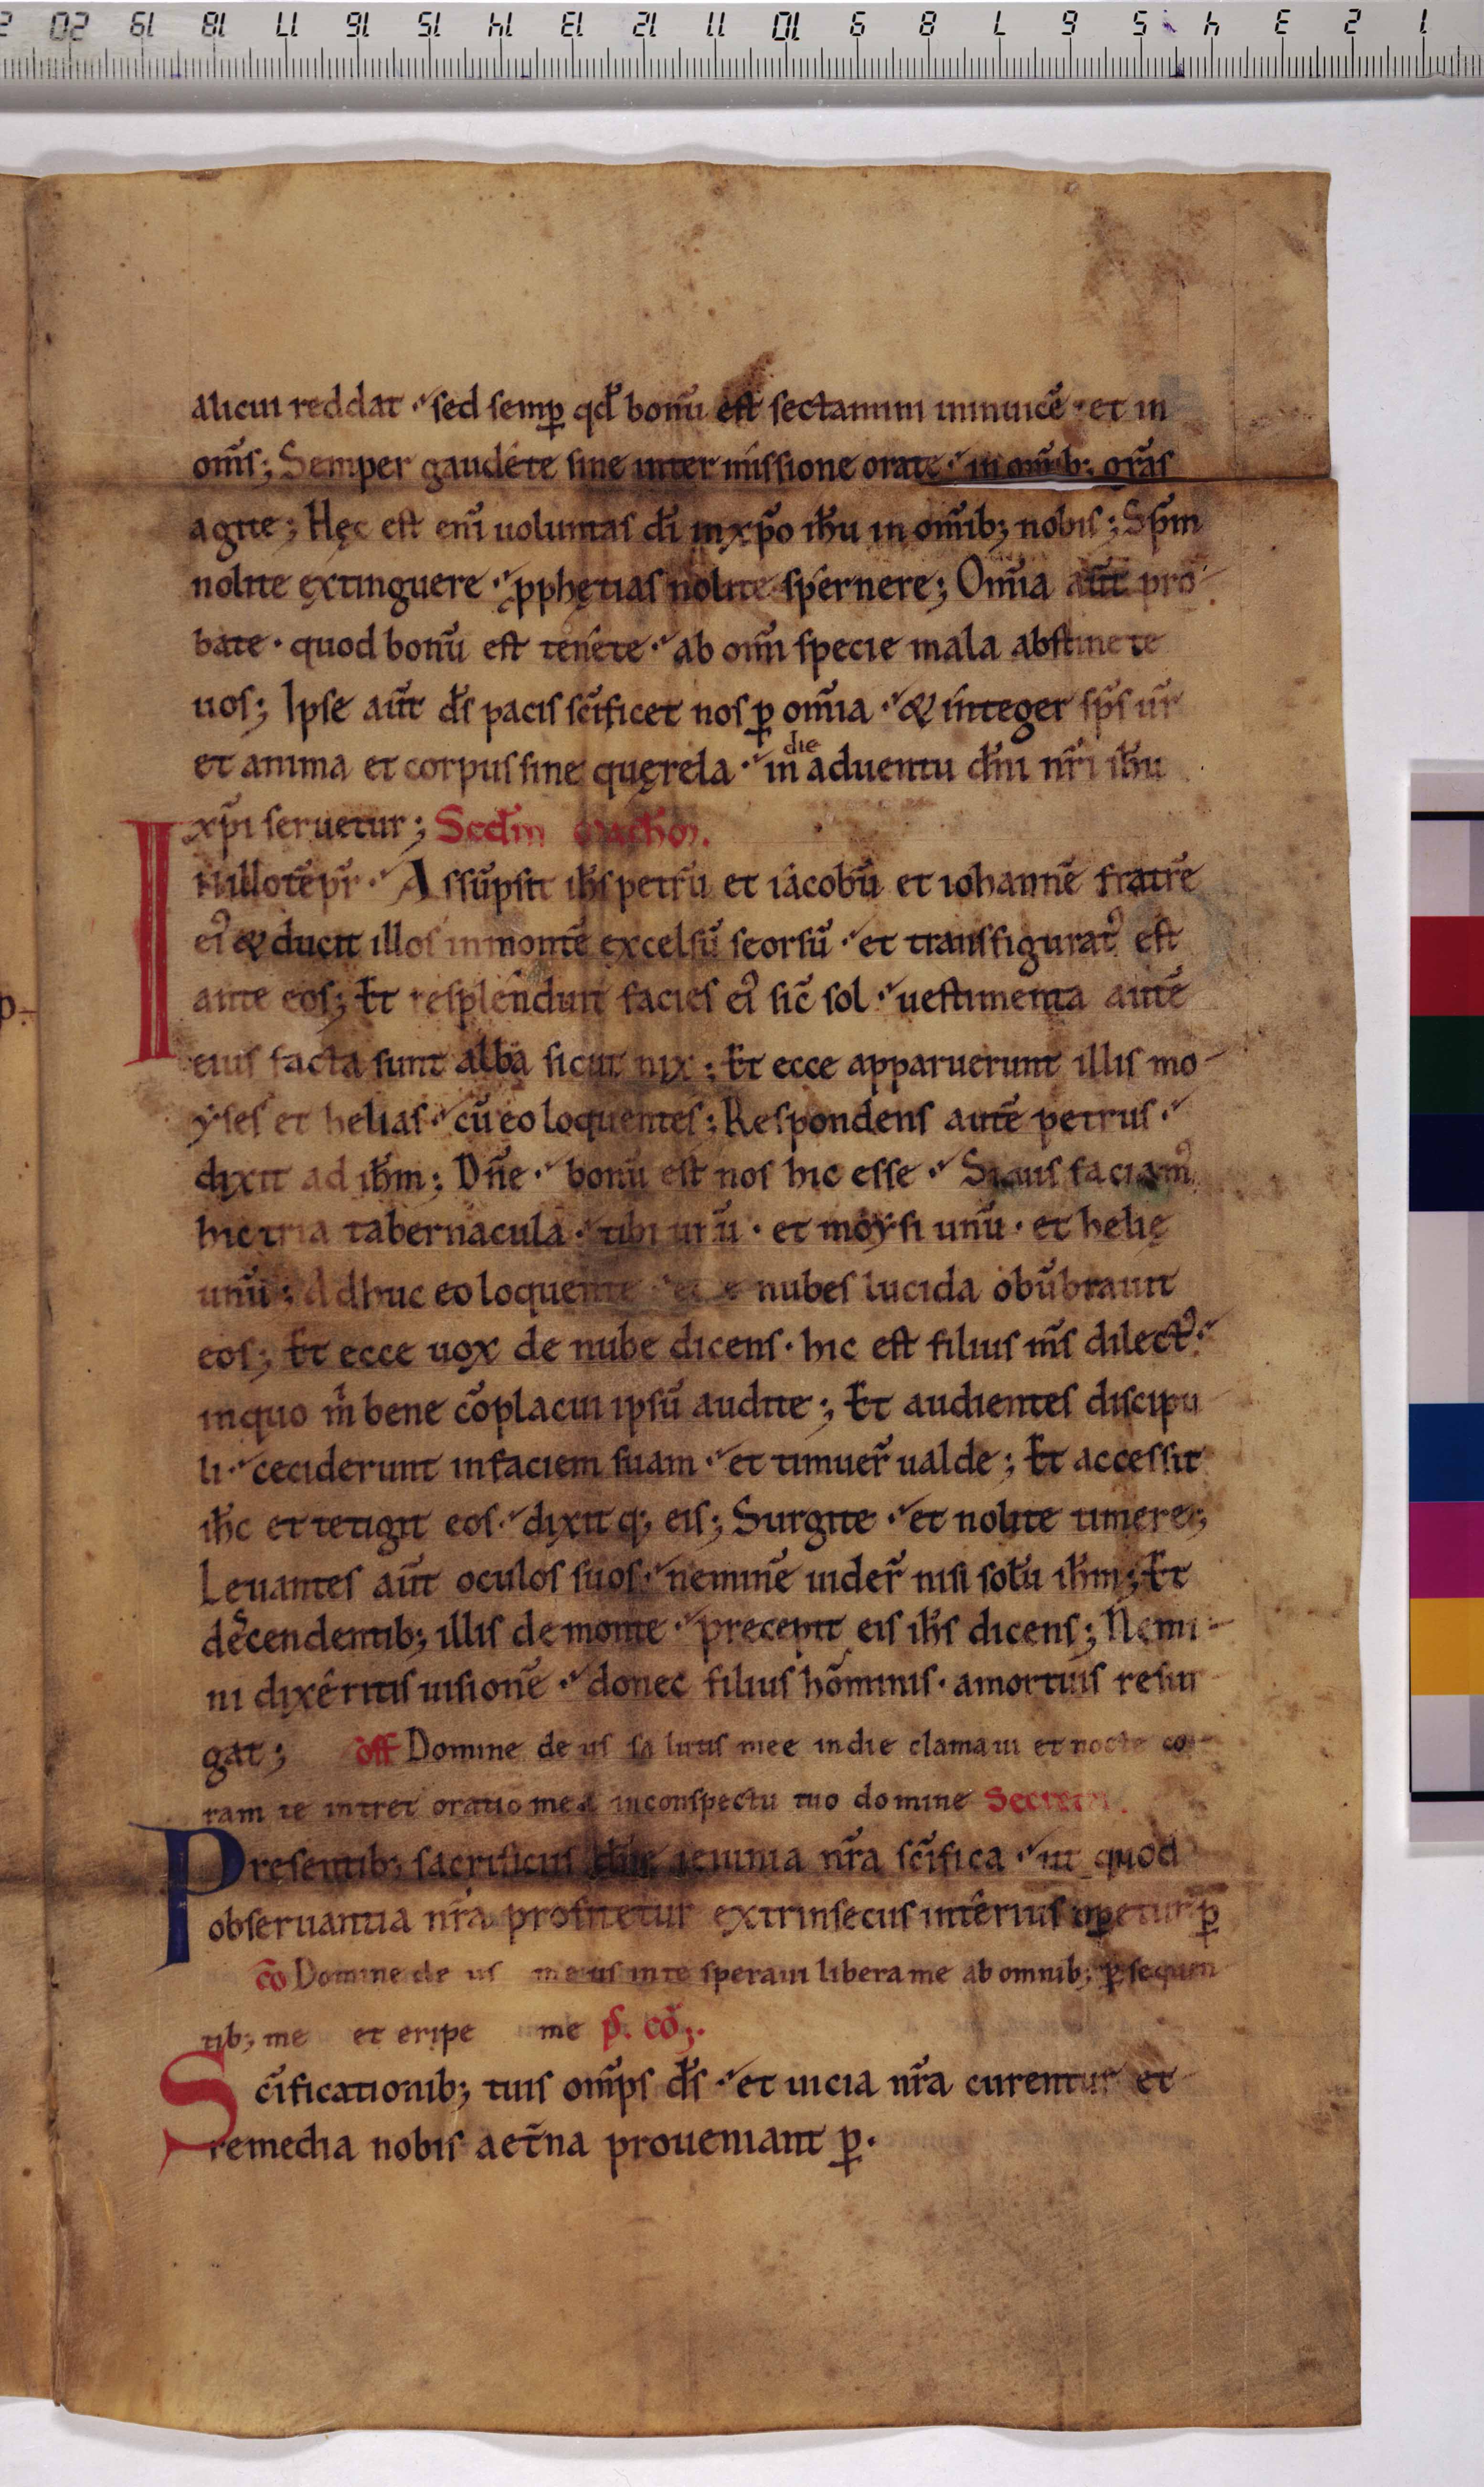 2 20 19 18 17 16 15 14 13 12 11 10 9 8 7 6 5 4 3 2 1
alicui reddat · sed semꝑ qd̄ bonū est sectamini inuicē · et in
om̄s; Semper gaudéte sine inter missione orate · in om̄ib; gr̄as
agite; Hęc est eni̅ uoluntas dī in xp̄o ih̄u in om̄ib; nobis; Sp̄m
nolite extinguere · ꝓphętias nolite spérnere; Om̄ia aūt pro-
bate · quod bonū est tenéte · ab omi̅ specie mala abstinete
uos; Ipse aūt ds̄ pacis sc̄ificet nos ꝑ om̄ia · & ínteger sp̄s ur̄
et anima et corpus sine quęrela · in die aduentu dn̄i nr̄i ih̄u
xp̄i seruetur; Scd̄m
In illo tēpr̄ · Assūpsit ih̄s petrū et iácobū et iohannē fratrē
eiꝰ & ducit illos in montē excelsū seorsū · et transfiguratꝰ est
ante eos; Et resplénduit facies eiꝰ sic̄ sol · uestimenta autē
eius facta sunt alba sicut nix; Et ecce apparuerunt illis mo-
yses et helias · cū eo loquentes; Respondens autē petrus ·
dixit ad ih̄m; Dn̄e · bonū est nos hic esse · Si uis faciamꝰ
hic tria tabernácula · tibi unū · et moysi unū · et helię
unū; Adhuc eo loquente · ecce nubes lucida obūbrauit
eos; Et ecce uox de nube dicens · hic est filius ms̄ dilectꝰ ·
in quo m̄ bene cōplacui ipsū audite; Et audientes discipu
li · ceciderunt in faciem suam · et timuer̄ ualde; Et accessit
ih̄c et tetigit eos · dixitq; eis; Surgite · et nolite timere;
Leuantes aūt oculos suos · neminē uider̄ nisi solū ih̄m; Et
dēcendentib; illis de monte · precepit eis ih̄s dicens; Nemi-
ni dixéritis uisionē · donec filius hōminis · a mortuis resur
gat; off̄ Domine de us sa lutis mee in die clamaui et nocte co-
ram te intret oratio mea in conspectu tuo domine Secreta.
Presentib; sacrificiis dn̄e ieiunia nr̄a sc̄ifica · ut quod
obseruantia nr̄a profitetur extrinsecus intérius oꝑetur ꝑ
cō Domine de us meus in te speraui libera me ab omnib; ꝑsequen
tib; me et eripe me p̄. cō;.
Sc̄ificationib; tuis om̄ps ds̄ · et uicia nr̄a curentur et
remedia nobis aet̄na proueniant ꝑ.